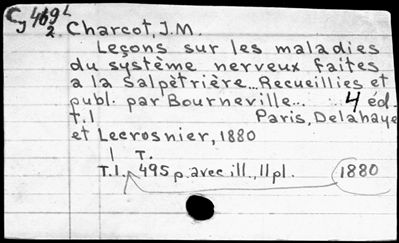 Cy 469 L
2 Charcot, J.M.
Leçons sur les maladies
du système nerveux faites
a la Salpètrière... Recueillies et
publ. par Bourneville... 4 éd.
t.1 Paris, Delahaye
et Lecrosnier, 1880
1 T.
T.1. 495 p. avec ill., 11 pl. 1880